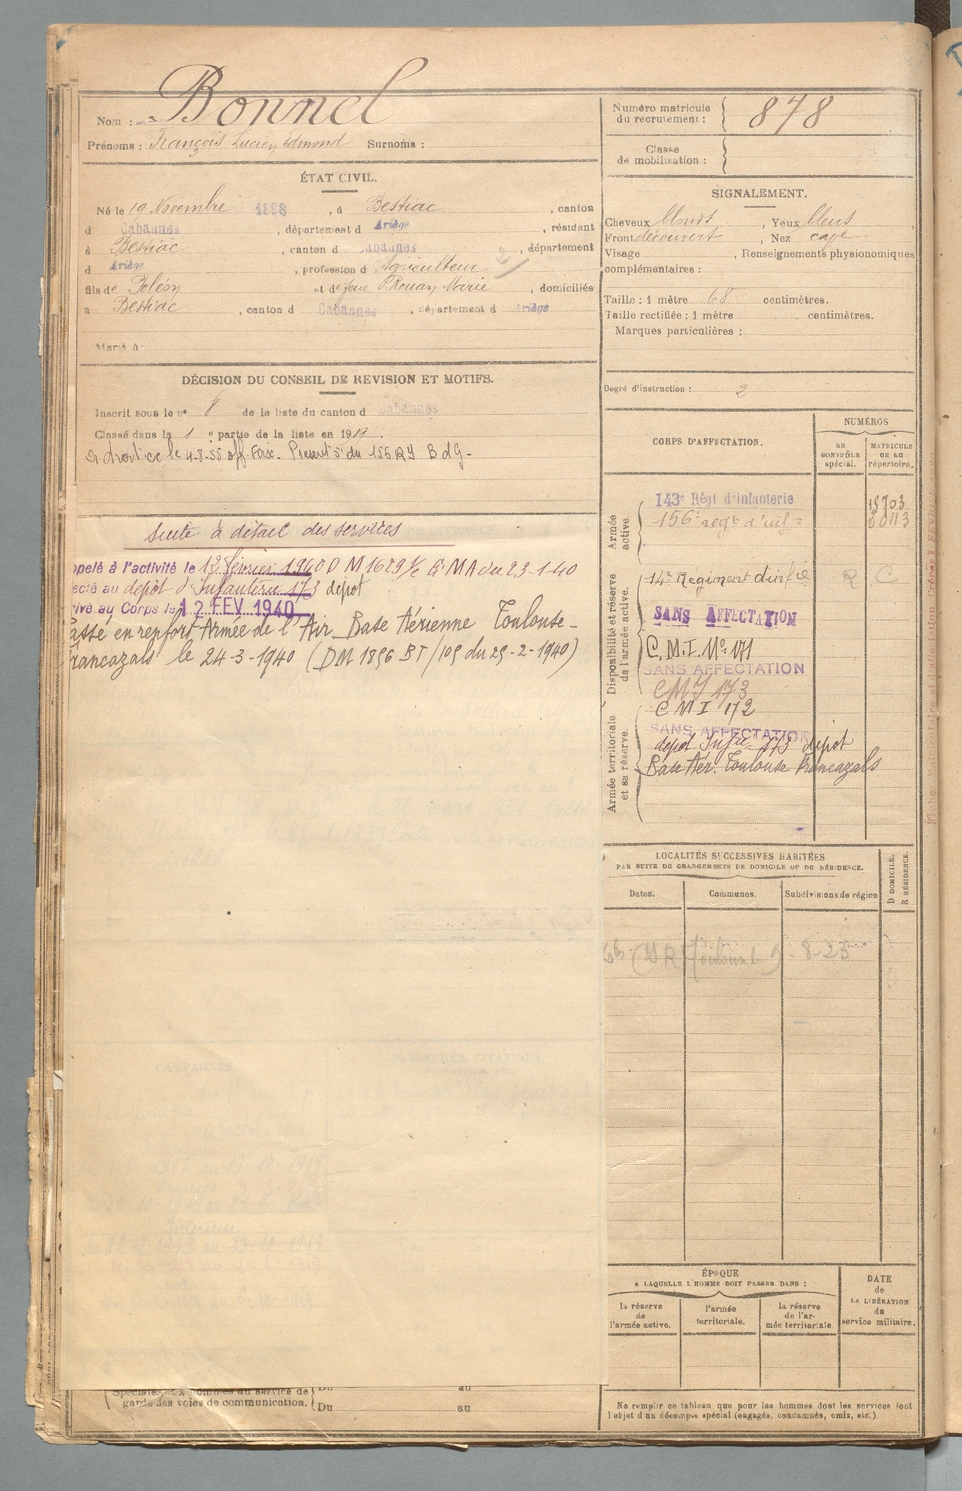 Nom : Bonnel
Prénoms : François Lucien Edmond Surnoms :
ÉTAT CIVIL.
Né le 19 Novembre 1898, à Bestiac, canton
d Cabannes, département d Ariège, résidant
à Bestiac, canton d Cabannes, département
d Ariège, profession d Agriculteur
fils de et de feue Rouan Marie, domiciliés
à Bestiac, canton d Cabannes, département d Ariège
Marié à
DÉCISION DU CONSEIL DE REVISION ET MOTIFS.
Inscrit sous le nº 8 de la liste du canton d Cabannes
Classé dans la 1 e partie de la liste en 1917.
droit ce le 4-8-55 off. Présent du 155 RI
Suite à détail des services
ppelé à l'activité le 12 février 1940 D M 1629 EMA du 23-1-40
ecté au dépôt d'Infanterie 173 depot
rivé au Corps le 12 FEV 1940
assé en renfort Armée de l'Air Base Aérienne Toulouse-
Francazals le 24-3-1940 (DM 1896 BT/109 du 29-2-1940)
CAMPAGNES.
BLESSURES, CITATIONS,
Spéciales aux hommes du service de
garde des voies de communication.
Du au
Du au
Numéro matricule
du recrutement : 878
Classe
de mobilisation :
SIGNALEMENT.
Cheveux blonds, Yeux bleus
Front découvert, Nez cave
Visage, Renseignements physionomiques
complémentaires :
Taille : 1 mètre 68 centimètres.
Taille rectifiée : 1 mètre centimètres.
Marques particulières :
Degré d'instruction : 2
CORPS D'AFFECTATION.
NUMÉROS
AU CONTRÔLE spécial.
MATRICULE OU AU répertoire.
Armée active.
143e Régt d'infanterie 15703
156e regt d'inf
Disponibilité et réserve de l'armée active.
14e Régiment d'inf R C
SANS AFFECTATION
C.M.I. Nº 171
SANS AFFECTATION
CMI 173
C M I 172
Armée territoriale et sa réserve.
SANS AFFECTATION
depot Infie 173 depot
Base Aér. Toulouse Francazals
LOCALITÉS SUCCESSIVES HABITÉES
PAR SUITE DE CHANGEMENTS DE DOMICILE OU DE RÉSIDENCE.
Dates.
Communes.
Subdivisions de région
D DOMICILE.
R RÉSIDENCE.
ÉPOQUE
A LAQUELLE L'HOMME DOIT PASSER DANS :
la réserve de l'armée active.
l'armée territoriale.
la réserve de l'armée territoriale.
DATE de LA LIBÉRATION du service militaire.
Ne remplir ce tableau que pour les hommes dont les services font
l'objet d'un décompte spécial (engagés, condamnés, omis, etc.)